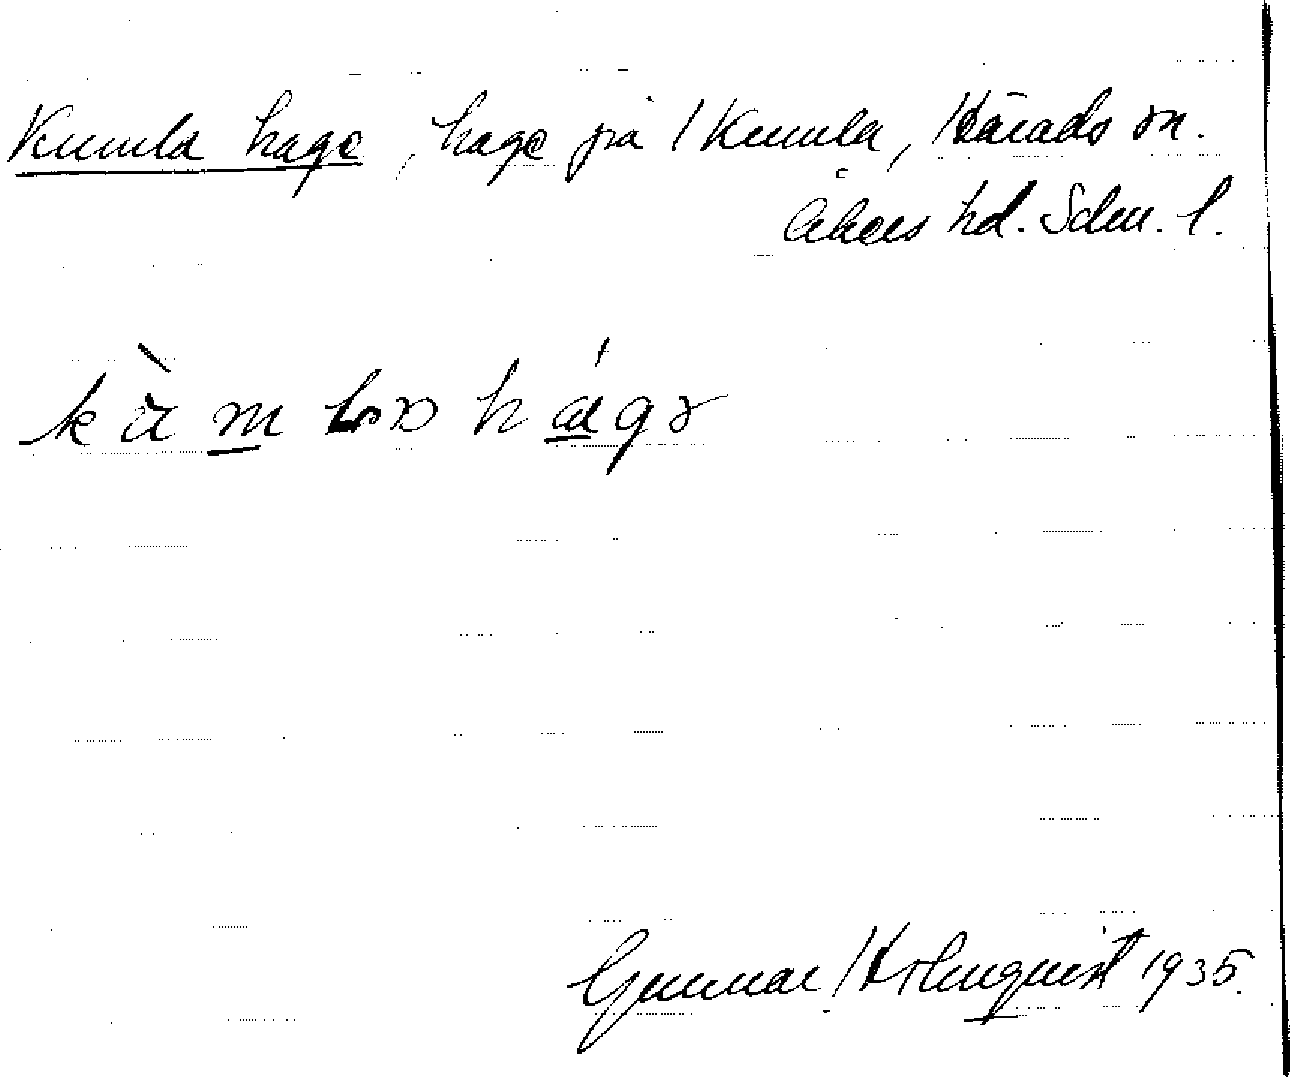 Kumla hage, hage på Kumla, Härads sn.
Åkers hd. Sdm. l.
Gunnar Holmquist 1935.